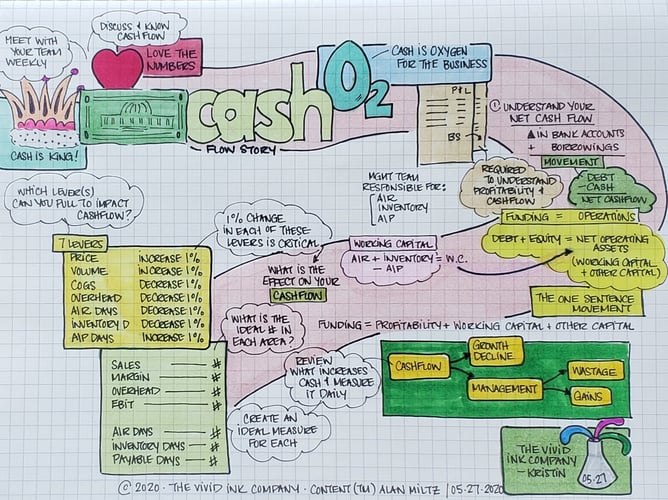 MEET WITH
YOUR TEAM
WEEKLY
DISCUSS & KNOW
CASHFLOW
LOVE THE
NUMBERS
CASH IS KING!
cash
FLOW STORY
O2
CASH IS OXYGEN
FOR THE BUSINESS
P+L
BS
① UNDERSTAND YOUR
NET CASH FLOW
▲ IN BANK ACCOUNTS
+ BORROWINGS
MOVEMENT
DEBT
- CASH
NET CASHFLOW
REQUIRED
TO UNDERSTAND
PROFITABILITY &
CASHFLOW
MGMT TEAM
RESPONSIBLE FOR:
A/R
INVENTORY
A/P
WHICH LEVER(S)
CAN YOU PULL TO IMPACT
CASHFLOW?
1% CHANGE
IN EACH OF THESE
LEVERS IS CRITICAL
FUNDING = OPERATIONS
DEBT + EQUITY = NET OPERATING
ASSETS
(WORKING CAPITAL
+ OTHER CAPITAL)
WORKING CAPITAL
A/R + INVENTORY = W.C.
- A/P
7 LEVERS
PRICE INCREASE 1%
VOLUME INCREASE 1%
COGS DECREASE 1%
OVERHEAD DECREASE 1%
A/R DAYS DECREASE 1%
INVENTORY D DECREASE 1%
A/P DAYS INCREASE 1%
WHAT IS THE
EFFECT ON YOUR
CASHFLOW
WHAT IS THE
IDEAL # IN
EACH AREA?
THE ONE SENTENCE
MOVEMENT
FUNDING = PROFITABILITY + WORKING CAPITAL + OTHER CAPITAL
SALES #
MARGIN #
OVERHEAD #
EBIT #
A/R DAYS #
INVENTORY DAYS #
PAYABLE DAYS #
REVIEW
WHAT INCREASES
CASH & MEASURE
IT DAILY
CREATE AN
IDEAL MEASURE
FOR EACH
CASHFLOW
GROWTH
DECLINE
MANAGEMENT
WASTAGE
GAINS
THE VIVID
INK COMPANY
- KRISTIN
05·27
© 2020 · THE VIVID INK COMPANY · CONTENT (TM) ALAN MILTZ / 05·27·2020